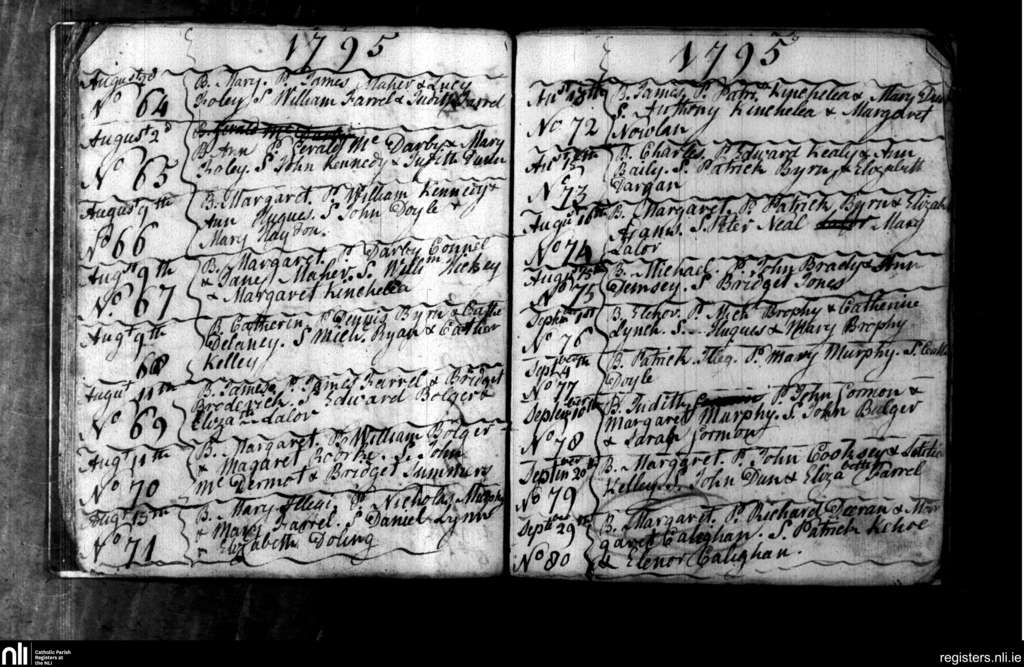 1795
August
No 64
B. Mary. P. James Maher & Lucy
Foley. S William Farrel & Judith Farrel
August 2d
No 65
B Ann P. Gerald Mc Darby & Mary
Foley. S. John Kennedy & Judith
August 9th
No 66
B. Margaret. P. William Kennedy &
Ann Hugues. S John Doyle &
Mary Haydon.
Augst 9th
No. 67
B. Margaret. P. Darby Connel
& Jane Maher. S. Willm Hickey
& Margaret Kinchelea
Augt 9th
68
B Catherin. P. Dennis Byrn & Cathe
Delaney. S Mich. Ryan & Cather
Kelley
Augt 11th
No 69
B. James P. James Farrel & Bridget
Broderick. S. Edward Bolger &
Eliza Lalor
Augt 11th
No 70
B. Margaret. P. William Bolger
& Magaret Roorke. S. John
Mc Dermot & Bridget Summers
Augt 15th
No 71
B. Mary Illegi. P. Nicholas
& Mary Farrel. S. Daniel Lynn
& Elizabeth Doling
1795
No 72
B. James P. Patrk Kinchelea & Mary
S. Anthony Kinchelea & Margaret
Nowlan
No 73
B. Charles P. Edward Kealy & Ann
Baily. S. Patrick Byrn & Elizabeth
Dargan
Augus 16th
No 74
B. Margaret. P. Patrick Byrn & Elizab
S. Peter Neal Mary
Lalor
No 75
B. Michael. P. John Brady & Ann
Demsey. S Bridget Jones
Septbr 1st
No 76
B. P. Mich Brophy & Catherine
Lynch. S. Hugues & Mary Brophy
Sept 4
No 77
B. Patrick Illeg. P. Mary Murphy. S.
Doyle
Septem 10th
No 78
B. Judith P. John Gormon &
Margaret Murphy. S. John Bolger
& Sarah Gormon
Septem 20th
No 79
B. Margaret. P. John Cooksey & Letitia
Kelley. S. John Dun & Elizabeth Farrel
Septber 29th
No 80
B. Margaret. P. Richard Deeran & Mar
garet Caleghan. S. Patrick Kehoe
& Elenor Calighan.
nli
Catholic Parish
Registers at
the NLI
registers.nli.ie